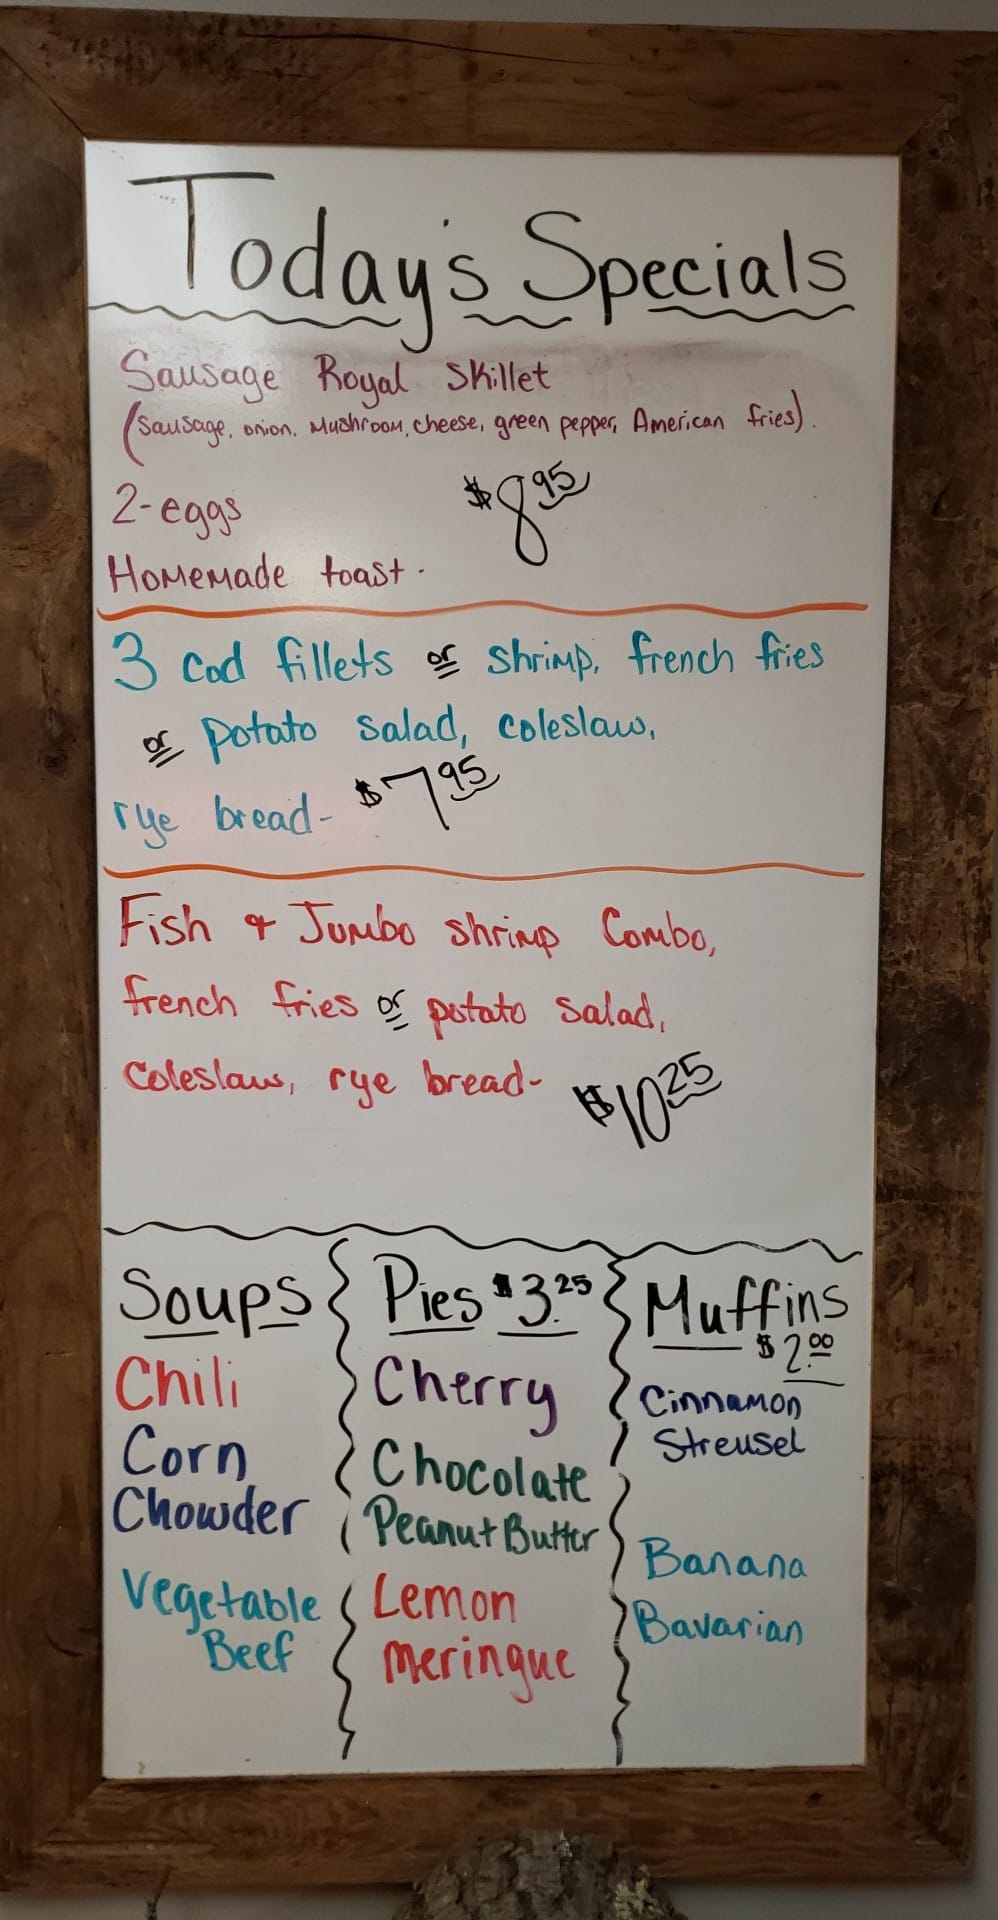 Today's Specials
Sausage Royal Skillet
(Sausage, onion, Mushroom, cheese, green pepper, American fries).
2-eggs $8.95
Homemade toast.
3 Cod fillets or shrimp, french fries
or potato salad, coleslaw,
rye bread- $7.95
Fish & Jumbo shrimp Combo,
french fries or potato salad,
Coleslaw, rye bread- $10.25
Soups
Chili
Corn
Chowder
Vegetable
Beef
Pies $3.25
Cherry
Chocolate
Peanut Butter
Lemon
Meringue
Muffins
$2.00
Cinnamon
Streusel
Banana
Bavarian